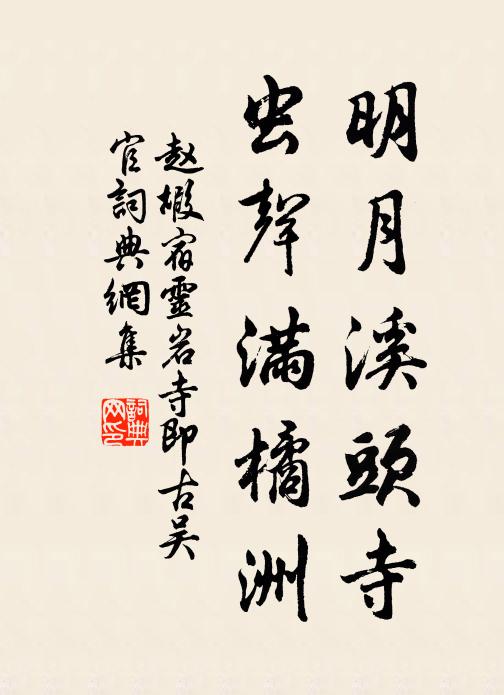 明月溪頭寺
虫聲滿橘洲
赵嘏宿靈岩寺即古吴
官詞典網集
詞典網印